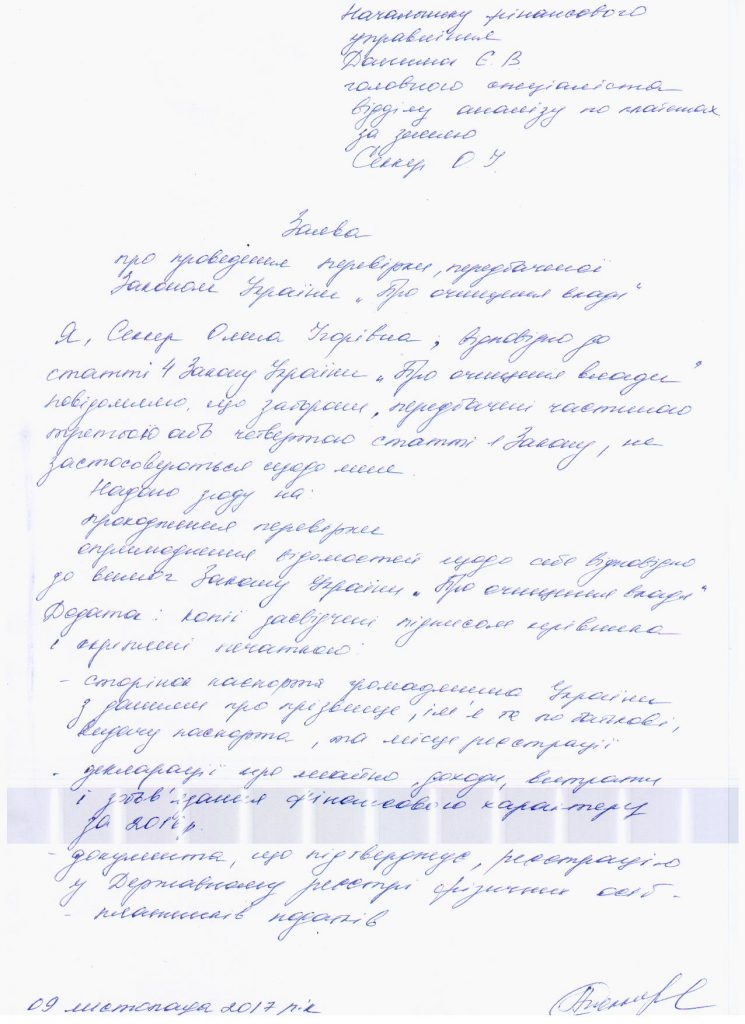 Начальнику фінансового
управління
Данчша Є.В
головного спеціаліста
відділу аналізу по платежах
за землю
Секкер О І.
Заява
про проведення перевірки, передбаченої
Законом України „Про очищення влади"
Я, Секкер Олена Ігорівна, відповідно до
статті 4 Закону України „Про очищення влади"
повідомляю, що заборони, передбачені частиною
третьою або четвертою статті 1 Закону, не
застосовуються щодо мене.
Надаю згоду на:
проходження перевірки
оприлюднення відомостей щодо себе відповідно
до вимог Закону України „Про очищення влади"
Додатки: копії засвідчені підписом керівника
і скріплені печаткою:
- сторінок паспорта громадянина України
з даними про прізвище, ім'я та по батькові,
видачу паспорта, та місце реєстрації
- декларації про майно, доходи, витрати
і зобов'язання фінансового характеру
за 2016р.
- документа, що підтверджує, реєстрацію
у Державному реєстрі фізичних осіб -
- платників податків
09 листопада 2017 рік